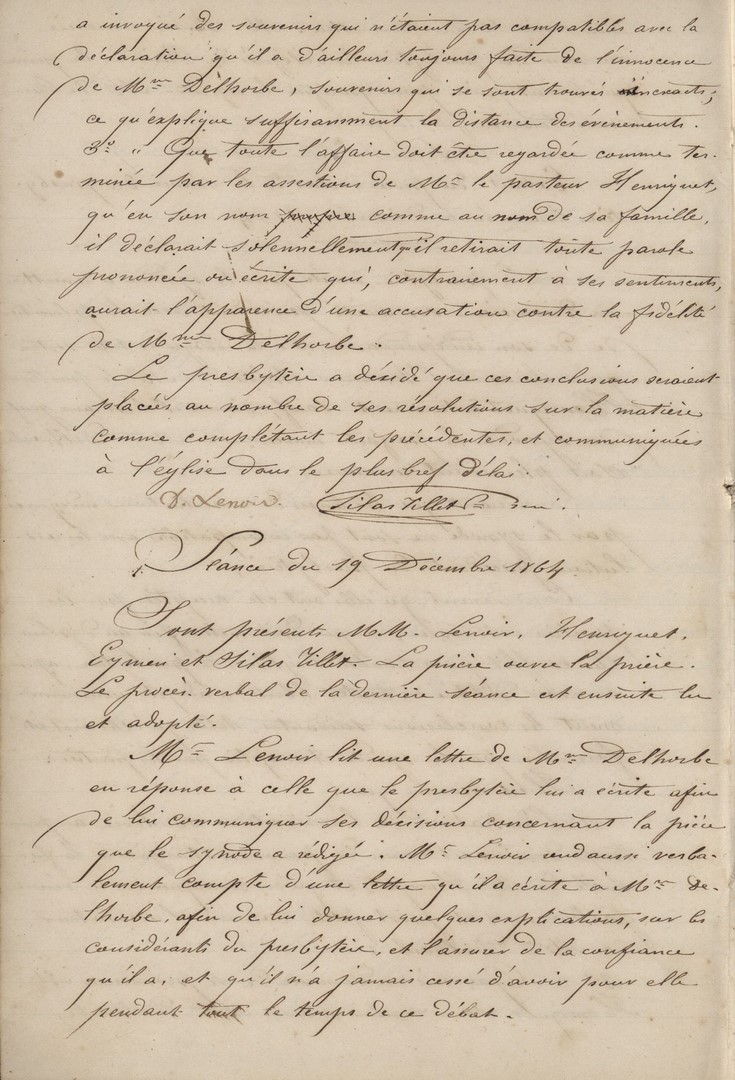 a invoqué des souvenirs qui n'étaient pas compatibles avec la
déclaration qu'il a d'ailleurs toujours faite de l'innocence
de Mme Delhorbe, souvenirs qui se sont trouvés inexacts;
ce qu'explique suffisamment la distance des événements.
3o " Que toute l'affaire doit être regardée comme ter-
minée par les assertions de Mr le pasteur Henriquet,
qu'en son nom comme au nom de sa famille,
il déclarait solennellement qu'il retirait toute parole
prononcée ou écrite qui, contrairement à ses sentiments,
aurait l'apparence d'une accusation contre la fidélité
de Mme Delhorbe.
Le presbytère a décidé que ces conclusions seraient
placées au nombre de ses résolutions sur la matière
comme complétant les précédentes, et communiquées
à l'église dans le plus bref délai.
D. Lenoir. Silas Villet
Séance du 19 Décembre 1864.
Sont présents MM. Lenoir, Henriquet,
Eymeri et Silas Villet. La prière ouvre la prière.
Le procès-verbal de la dernière séance est ensuite lu
et adopté.
Mr Lenoir lit une lettre de Mme Delhorbe
en réponse à celle que le presbytère lui a écrite afin
de lui communiquer ses décisions concernant la pièce
que le synode a rédigée. Mr Lenoir rend aussi verba-
lement compte d'une lettre qu'il a écrite à Mme De-
lhorbe, afin de lui donner quelques explications, sur les
considérants du presbytère, et l'assurer de la confiance
qu'il a, et qu'il n'a jamais cessé d'avoir pour elle
pendant tout le temps de ce débat.